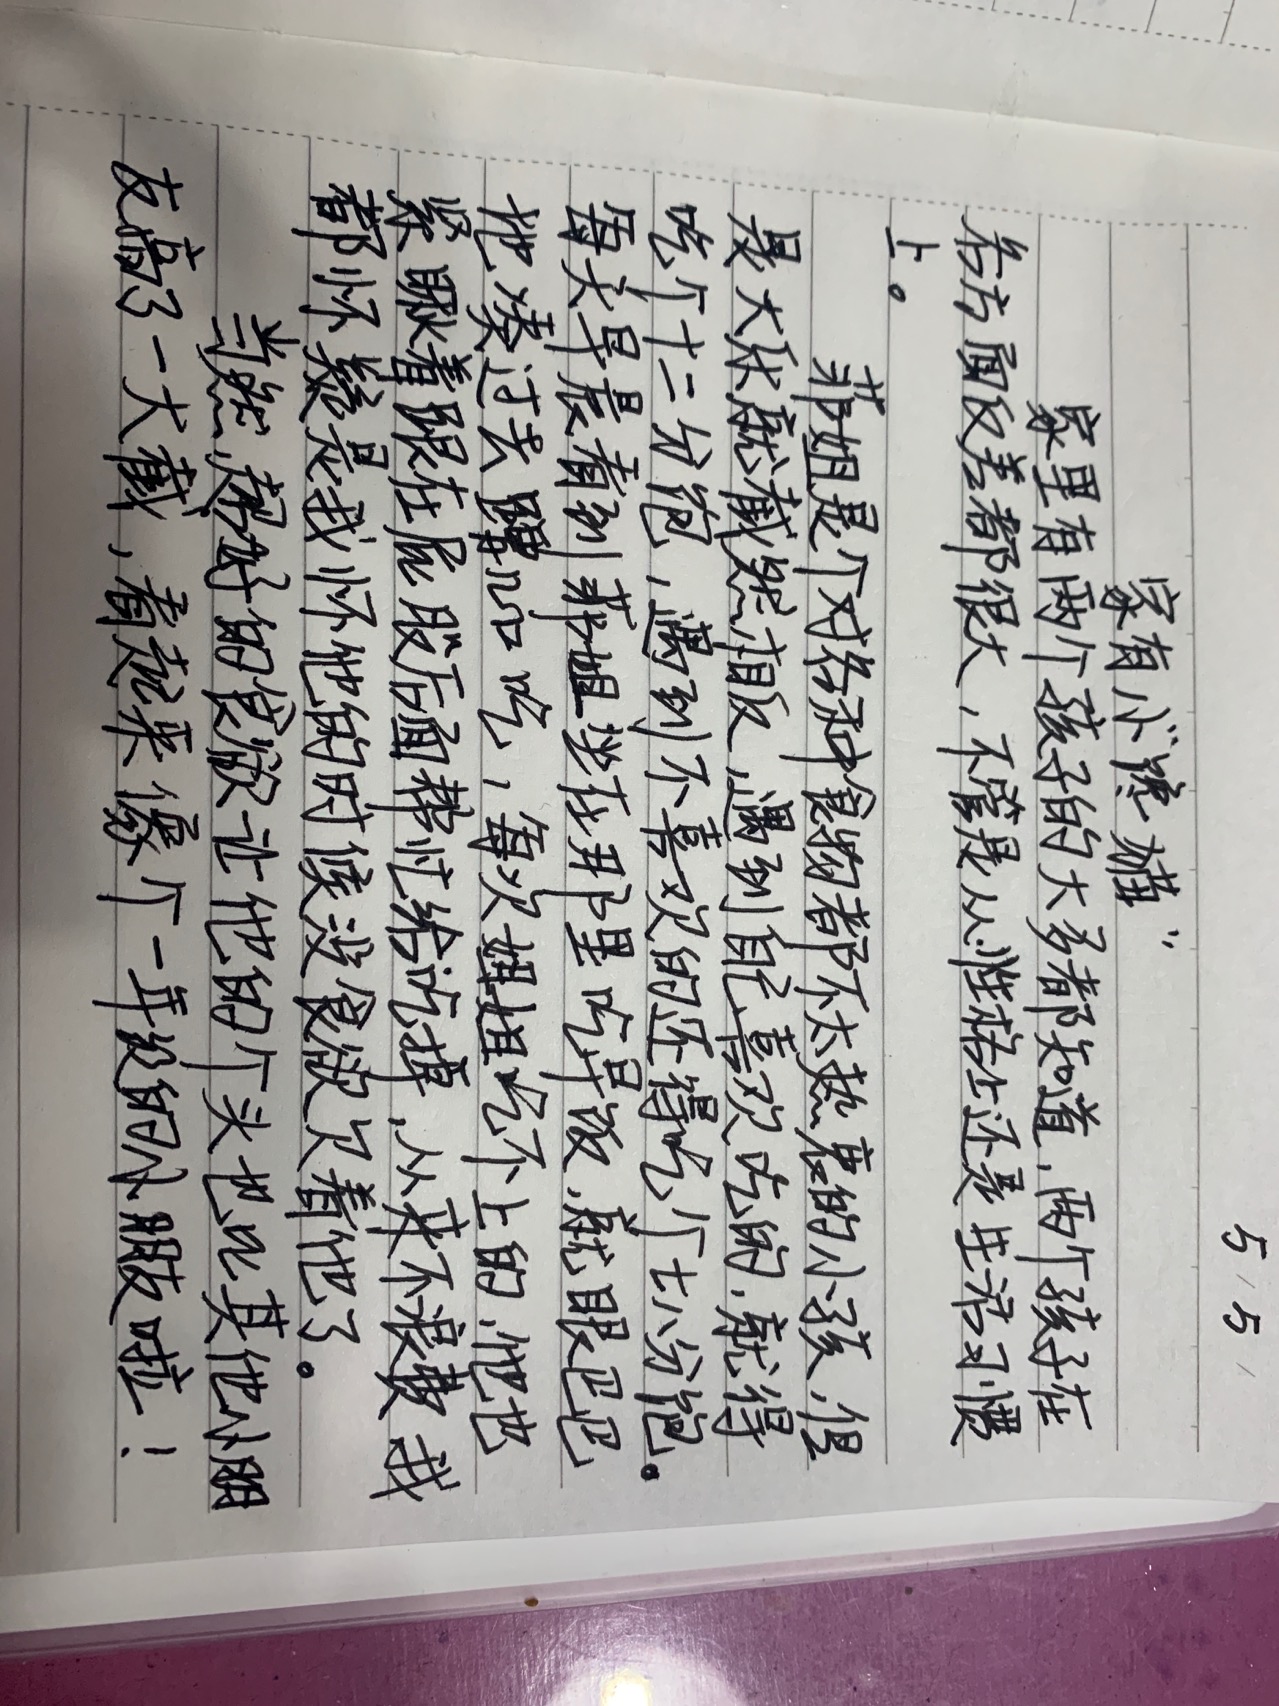 5、5、
家有小"馋猫"
家里有两个孩子的大多都知道，两个孩子在
各方面反差都很大，不管是从性格上还是生活习惯
上。
菲姐是个对各种食物都不太热衷的小孩，但
是大欣就截然相反，遇到自己喜欢吃的，就得
吃个十二分饱，遇到不喜欢的还得吃个七八分饱。
每天早晨看到菲姐坐在那里吃早饭，就眼巴巴
地凑过去蹭几口吃，每次姐姐吃不上的，他也
紧跟着跟在屁股后面帮忙给吃掉，从来不浪费 我
都怀疑是我怀他的时候没食欲欠着他了。
当然，超好的食欲让他的个头也比其他小朋
友高了一大截，看起来像个一年级的小朋友啦！